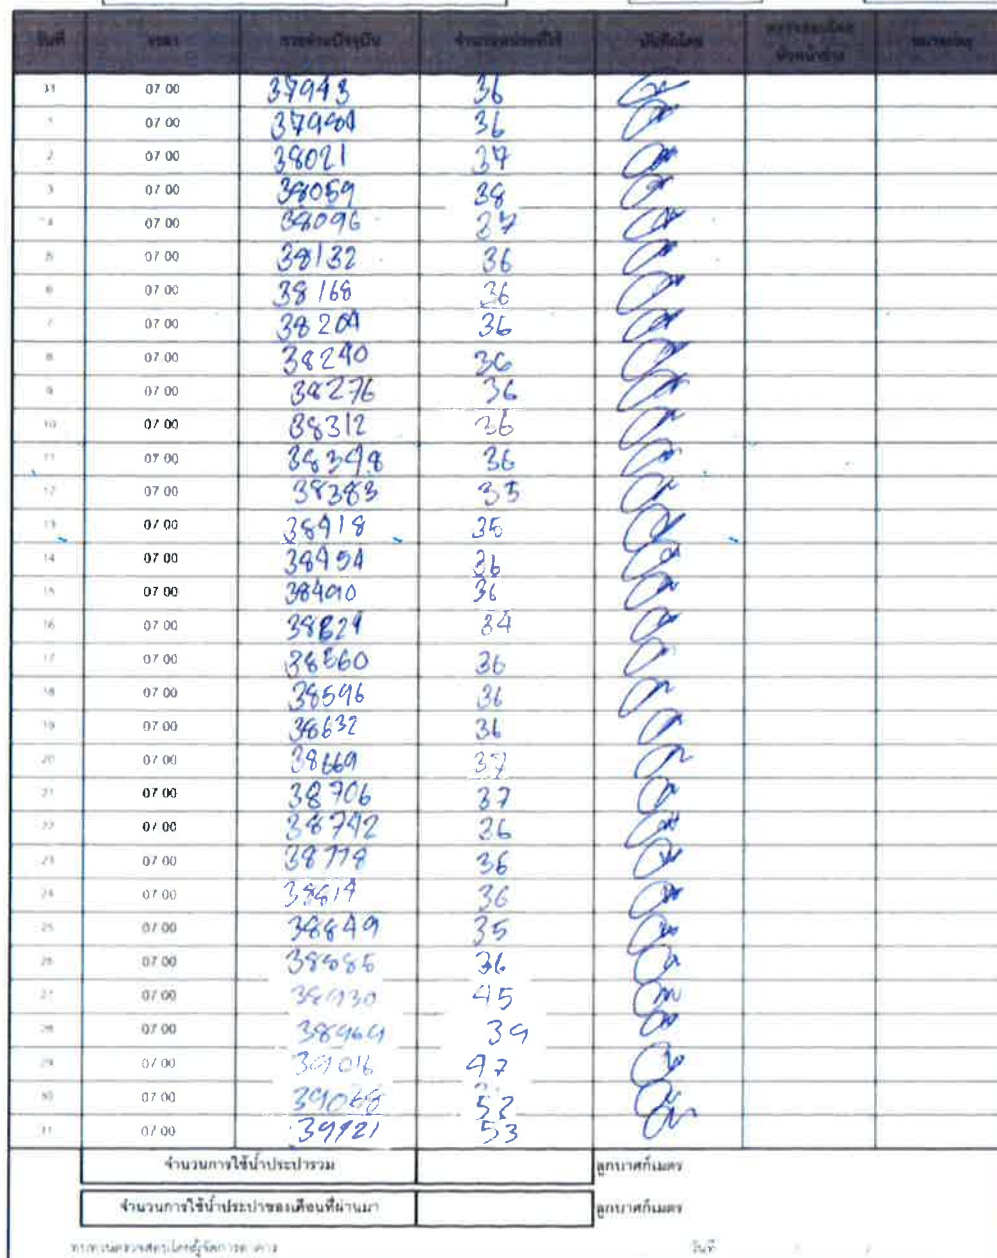 วันที่ เวลา การอ่านปัจจุบัน จำนวนหน่วยที่ใช้ บันทึกโดย ตรวจสอบโดย หัวหน้าช่าง หมายเหตุ
31 07 00 37943 36
1 07 00 37984 36
2 07 00 38021 37
3 07 00 38059 38
4 07 00 38096 37
5 07 00 38132 36
6 07 00 38168 36
7 07 00 38204 36
8 07 00 38240 36
9 07 00 38276 36
10 07 00 38312 36
11 07 00 38348 36
12 07 00 38383 35
13 07 00 38418 35
14 07 00 38454 36
15 07 00 38490 36
16 07 00 38524 34
17 07 00 38560 36
18 07 00 38596 36
19 07 00 38632 36
20 07 00 38669 37
21 07 00 38706 37
22 07 00 38742 36
23 07 00 38778 36
24 07 00 38814 36
25 07 00 38849 35
26 07 00 38885 36
27 07 00 38930 45
28 07 00 38969 39
29 07 00 39016 47
30 07 00 39068 52
31 07 00 39121 53
จำนวนการใช้น้ำประปารวม ลูกบาศก์เมตร
จำนวนการใช้น้ำประปาของเดือนที่ผ่านมา ลูกบาศก์เมตร
ทบทวนตรวจสอบโดยผู้จัดการอาคาร วันที่ / /